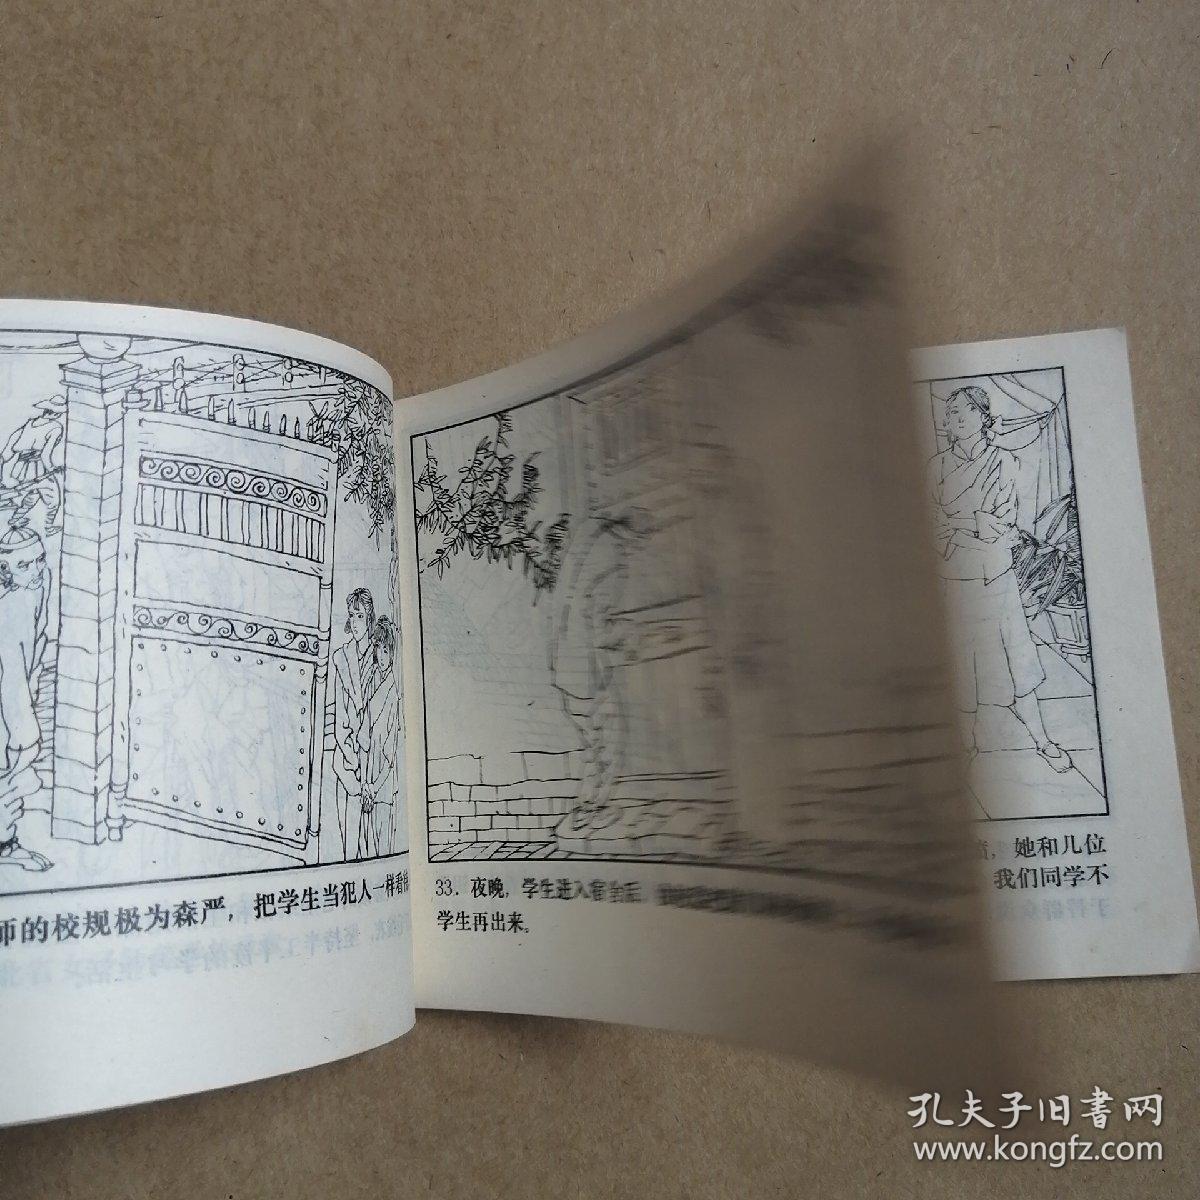 师的校规极为森严，把学生当犯人一样看
33．夜晚，学生进入宿舍后，
学生再出来。
，她和几位
我们同学不
孔夫子旧书网
www.kongfz.com